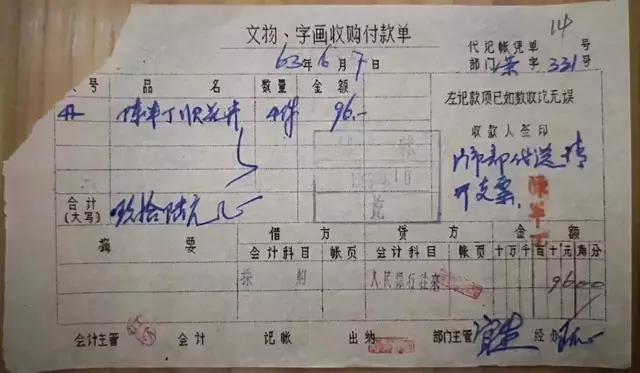 文物、字画收购付款单
14
代记帐凭单 号
63年6月7日
部门 业 字 331号
号 品名 数量 金额
陈半丁 花卉 4件 96.-
左记款项已如数收讫无误
收款人签印
门市部代送请
开支票
陈半丁
合计
(大写) 玖拾陆元
摘要 借方 贷方 金额
会计科目 帐页 会计科目 帐页 十万千百十元角分
采购 人民银行往来 9600
会计主管 会计 记帐 出纳 部门主管 经办